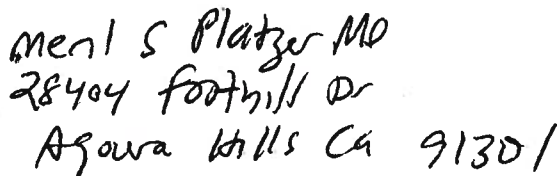 Merl S Platzer MD
28404 Foothill Dr
Agoura Hills Ca 91301